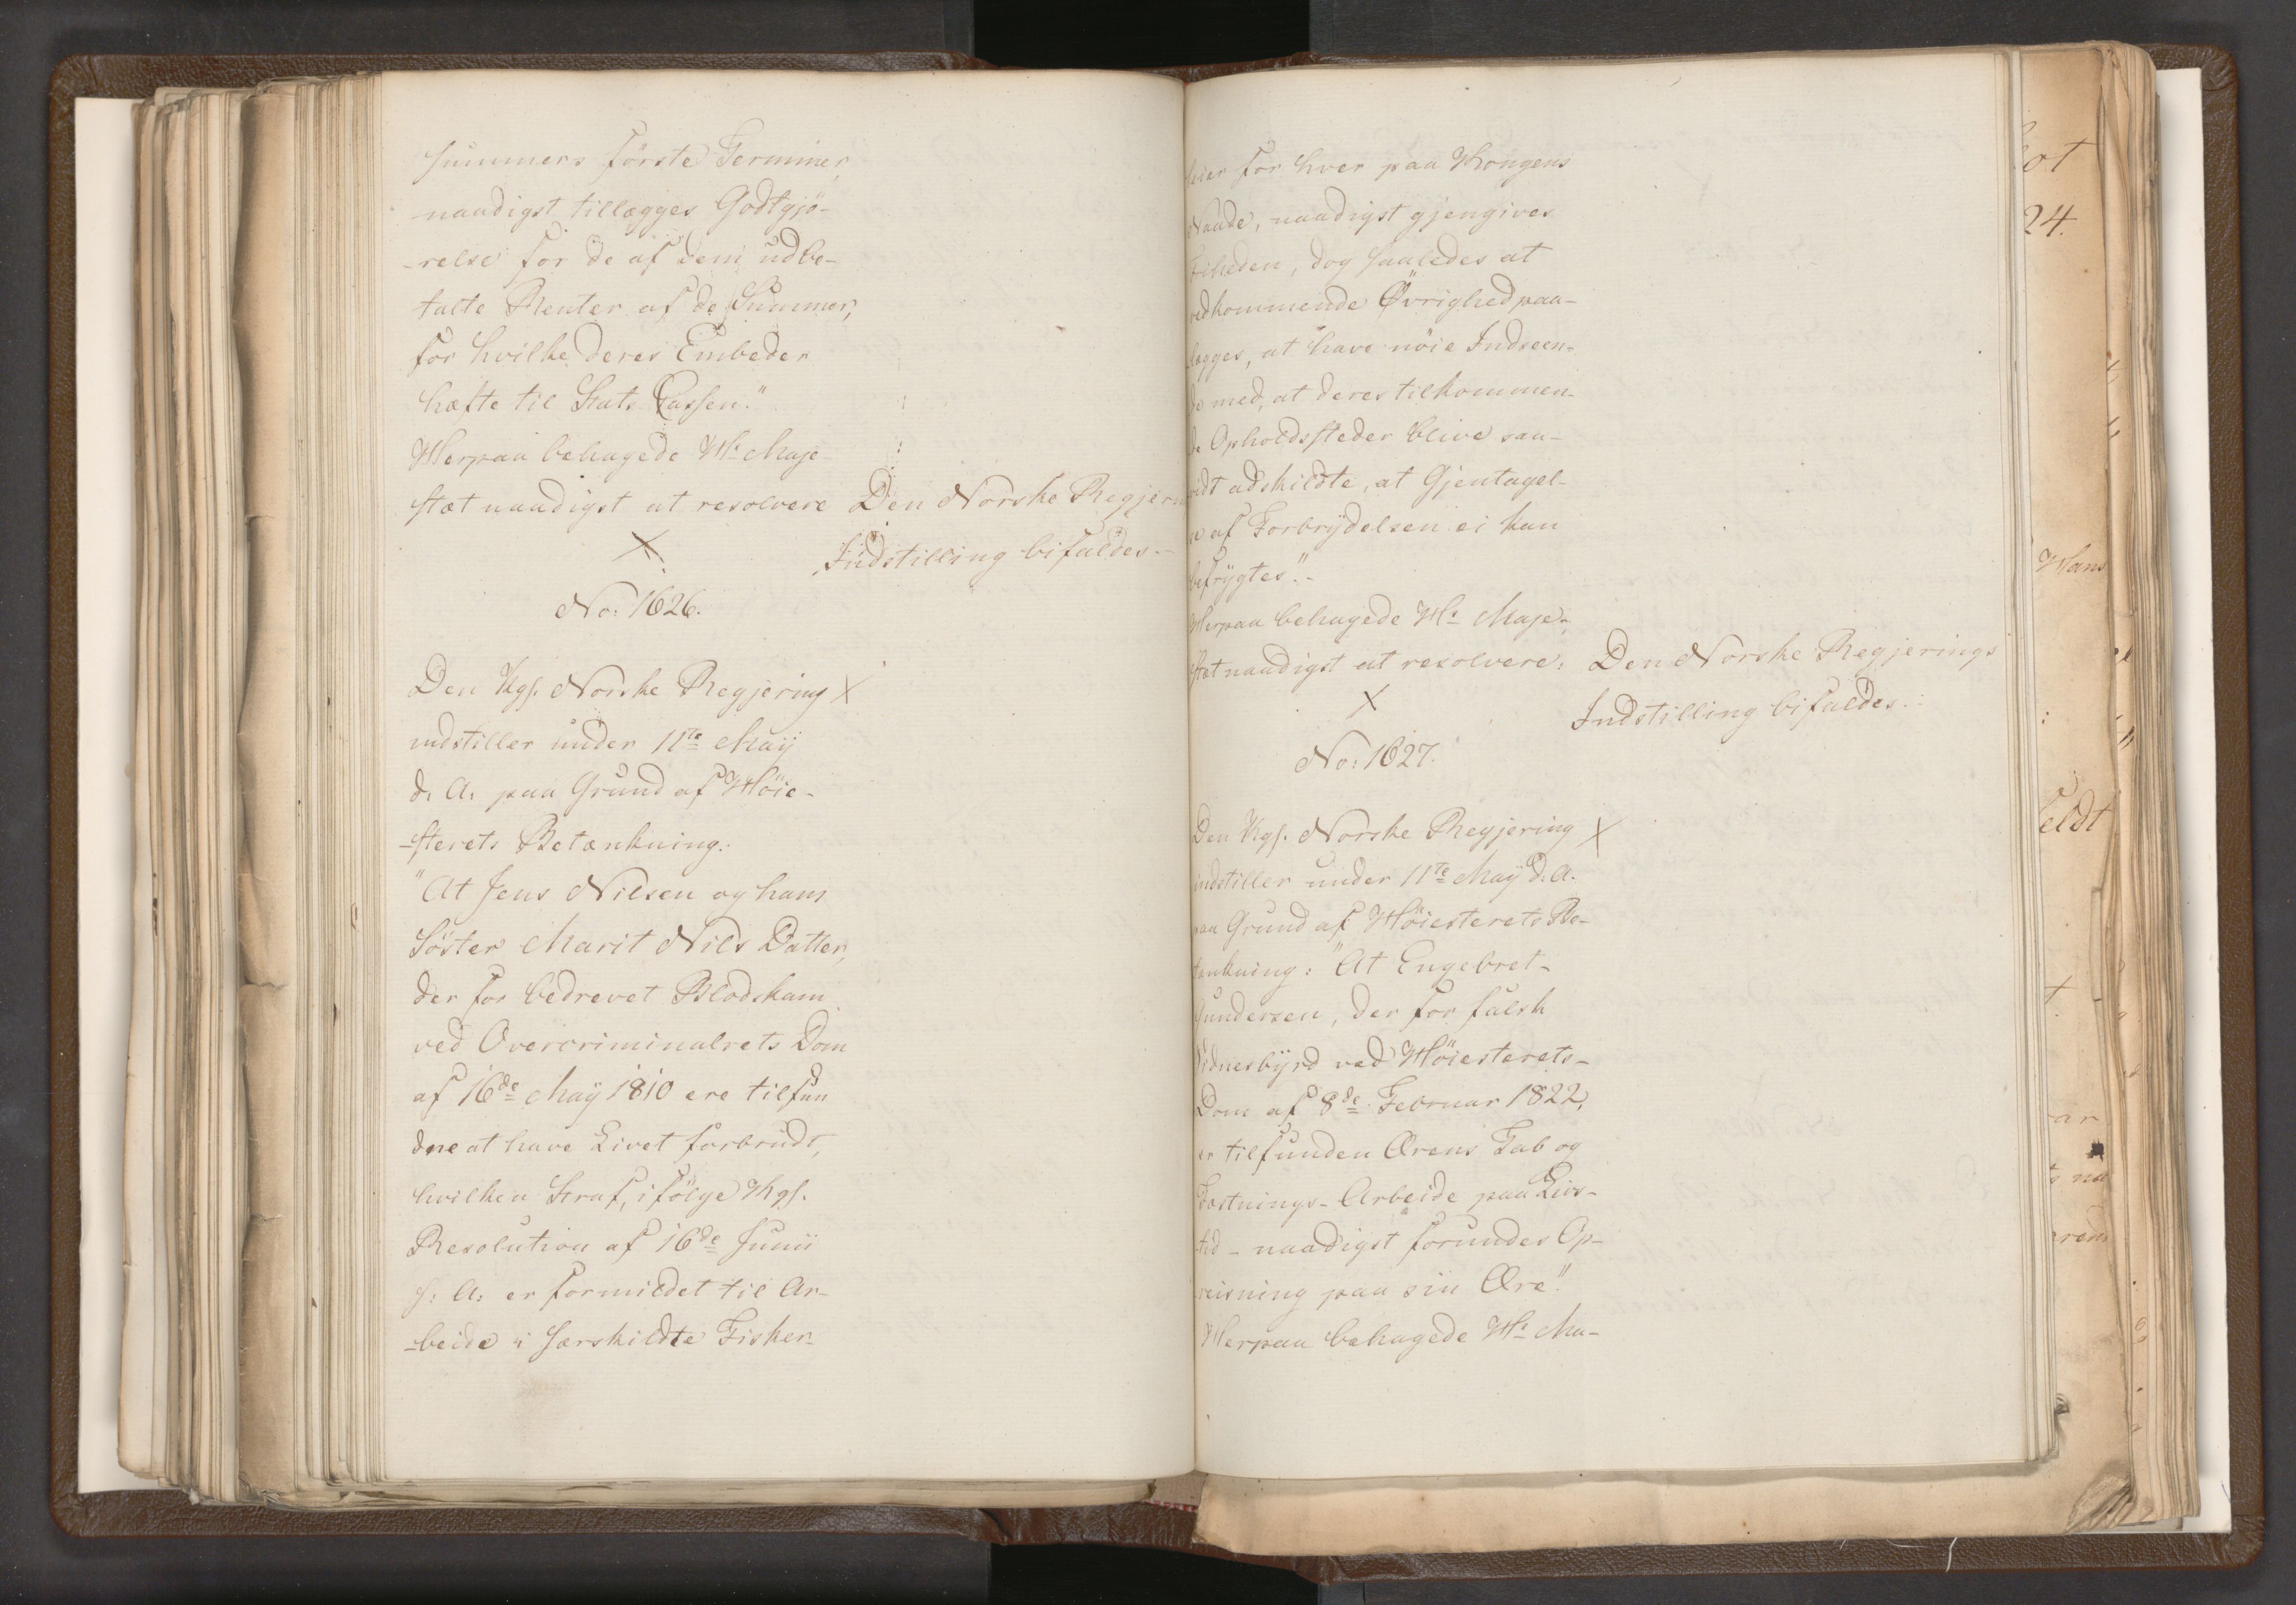 Summers första Terminer,
naadigst tillægges Godtgjö-
-relse for de af dem udbe-
talte Renter af de Summer,
for hvilke deres Embeder
hæfte til Stats Cassen."
Herpaa behagede Hs Maje-
stæt naadigst at resolvere Den Norske Regjer
Indstilling bifaldes.-
X
No: 1626.
Den Kgl. Norske Regjering X
indstiller under 11te Maÿ
d. A. paa Grund af Höie-
-sterets Betænkning:
"At Jens Nilsen og hans
Söster Marit Nils Datter,
der for bedrevet Blodskam
ved Overcriminalrets Dom
af 16de Maÿ 1810 ere tilfun
dne at have Livet forbrudt,
hvilken Straf, i fölge Kgl.
Resolution af 16de Junii
s: A: er formildet til Ar-
-beide i særskildte Fisker-
leier for hver paa Kongens
Naade, naadigst gjengives
Friheden, dog saaledes at
vedkommende Övrighed paa-
lægges, at have nöie Indseen-
de med, at deres tilkommen-
de Opholdssteder blive saa-
vidt adskildte, at Gjentagel-
se af Forbrÿdelsen ei kan
befrÿgtes."-
Herpaa behagede Hs Maje-
stæt naadigst at resolvere: Den Norske Regjerings
Indstilling bifaldes.
X
No: 1627.
Den Kgl. Norske Regjering X
indstiller under 11te Maÿ d. A.
paa Grund af Höiesterets Be-
tænkning: "At Engebret-
Gundersen, der for falsk
Vidnesbÿrd ved Höiesterets-
Dom af 8de Februar 1822,
er tilfunden Ærens Tab og
Fæstnings-Arbeide paa Livs-
tid - naadigst forundes Op-
reisning paa sin Ære."
Herpaa behagede Hs Ma-
24.
Hans